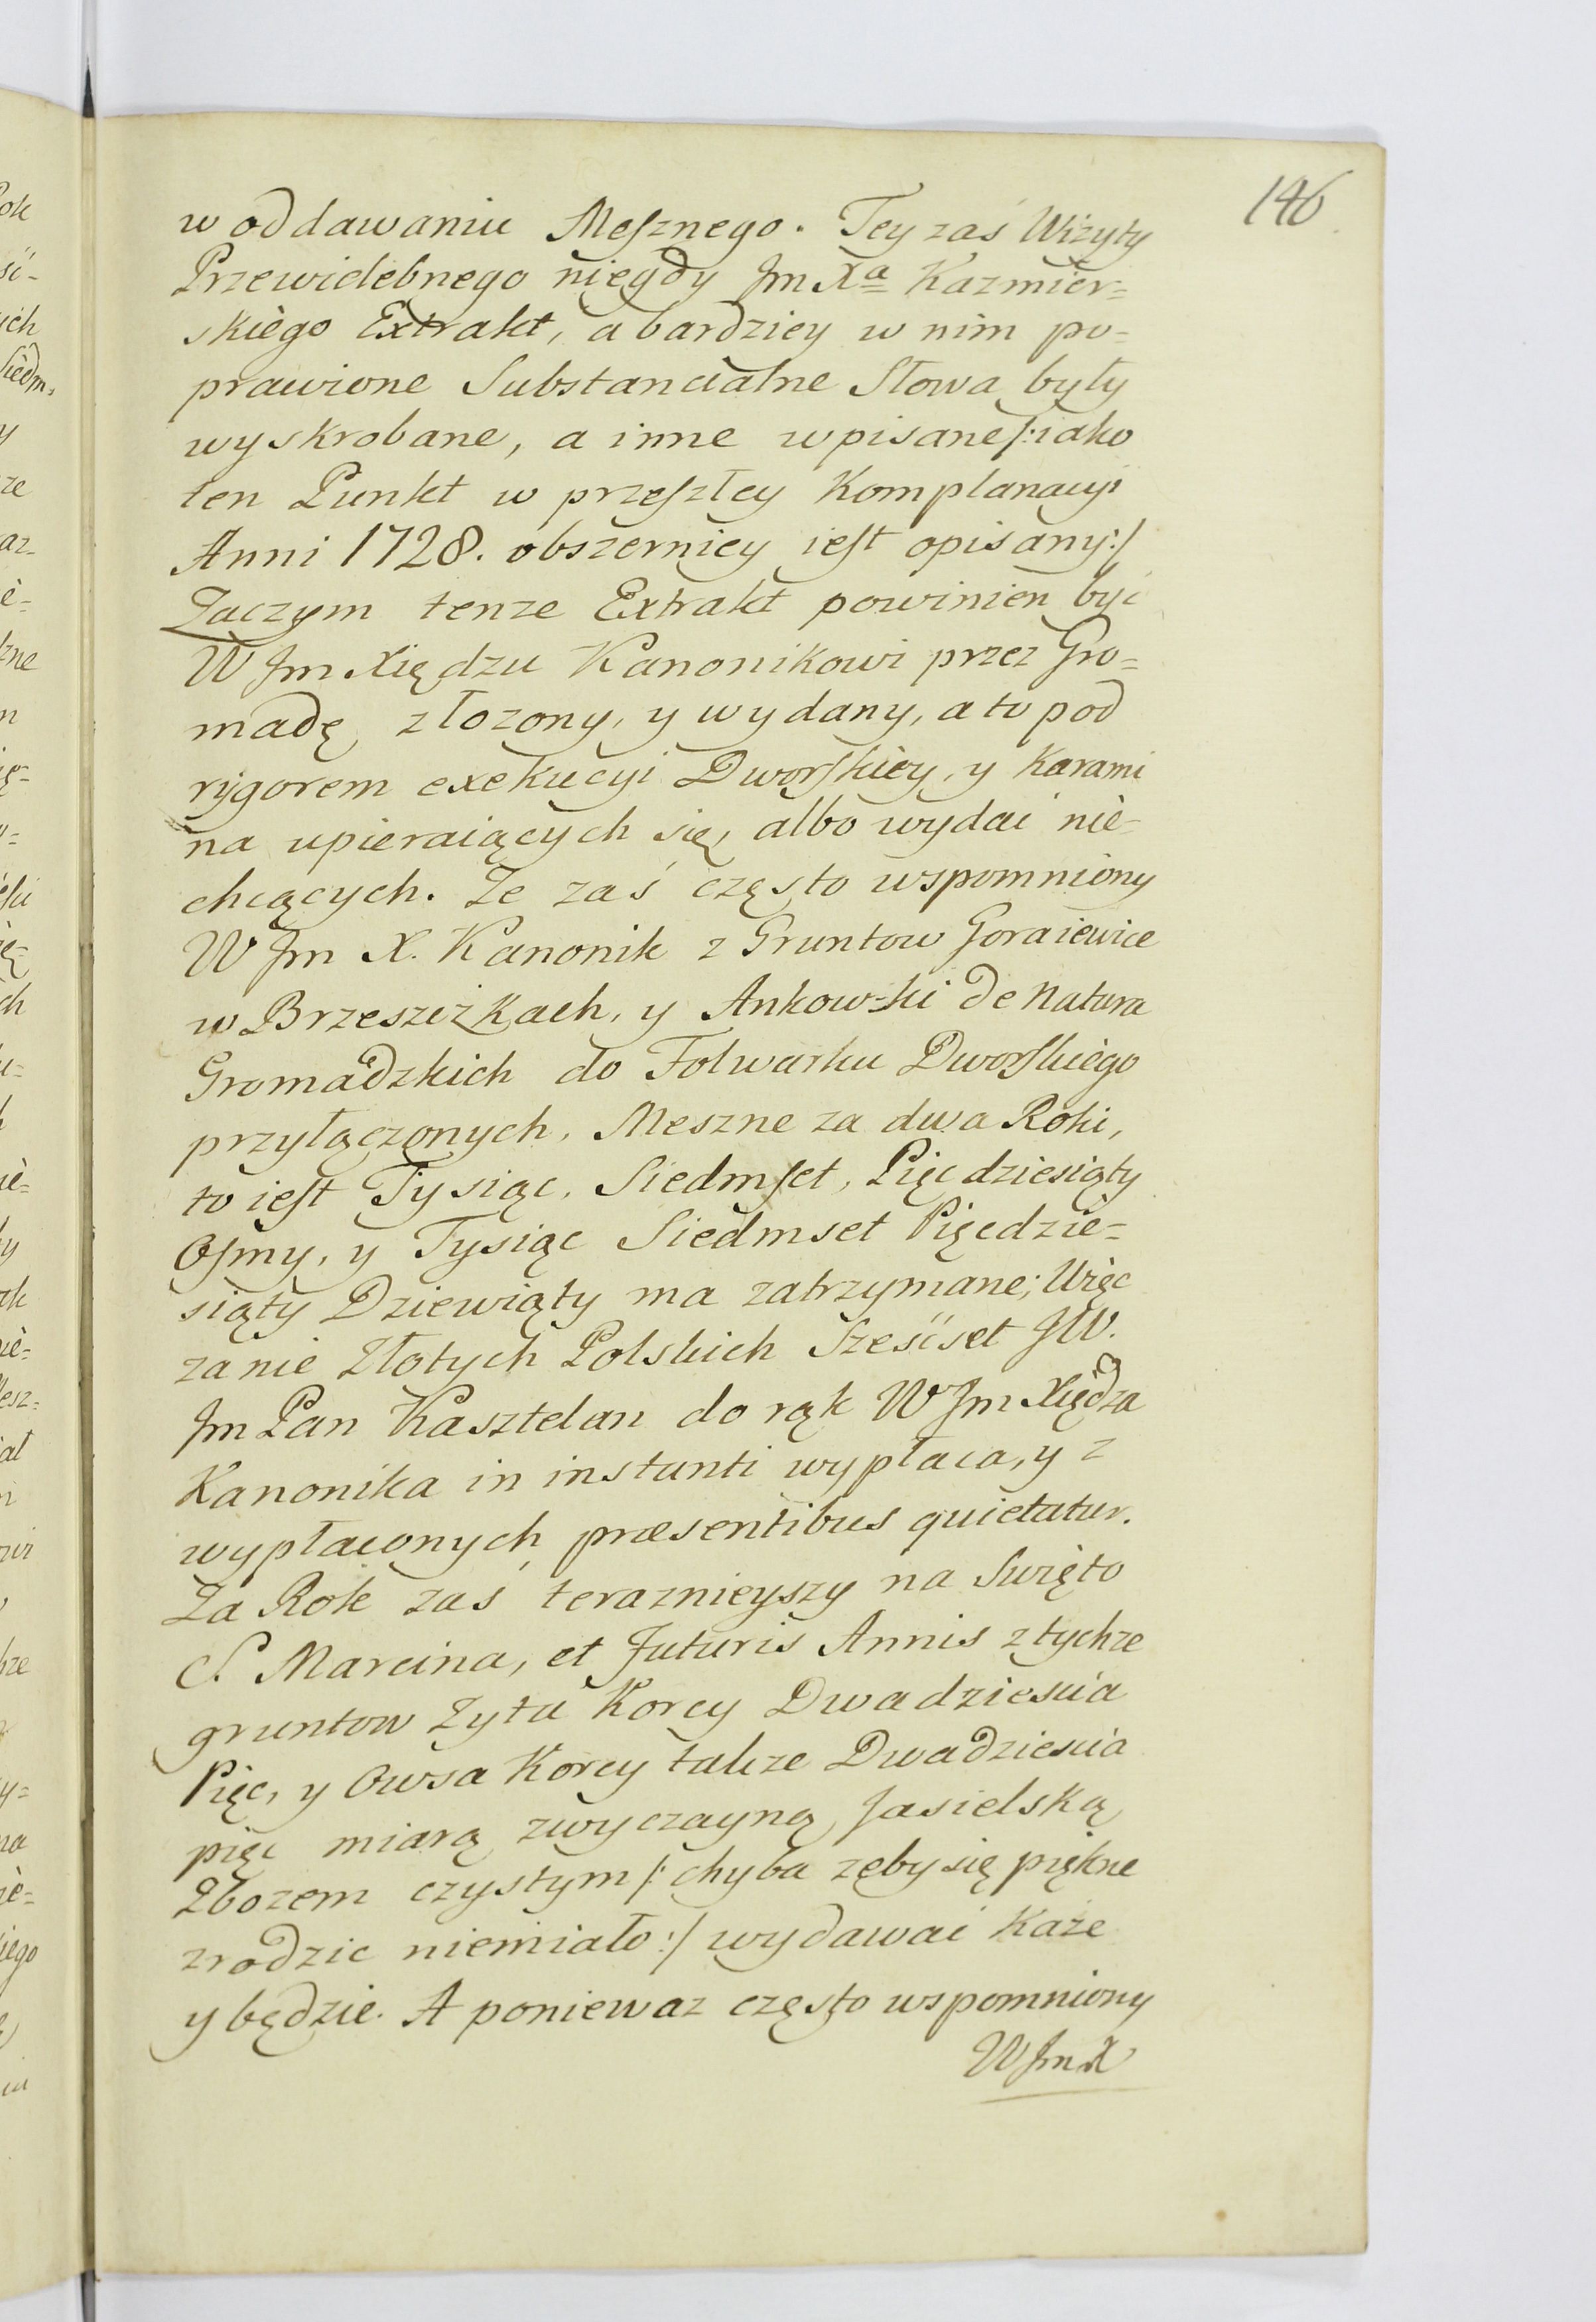 146
w oddawaniu Mesznego. Tey zaś Wizyty
Przewielebnego niegdy Jm Xa Kazmier=
skiego Extrakt, a bardziey w nim po=
prawione Substancialne Słowa były
wyskrobane, a inne wpisane /: iako
ten Punkt w przeszłey Komplanacyi
Anni 1728. obszerniey iest opisany :/
Zaczym tenze Extrakt powinien być
W Jm Xiędzu Kanonikowi przez Gro=
madę złozony, y wydany, a to pod
rygorem exekucyi Dworskiey, y Karami
na upieraiących się, albo wydać nie=
chcących. Ze zaś często wspomniony
W Jm X. Kanonik z Gruntow Goraiewice
w Brzeszczkach, y Ankowski de Natura
Gromadzkich do Folwarku Dworskiego
przyłączonych, Meszne za dwa Roki,
to iest Tysiąc, Siedmset, Pięcdziesiąty
Osmy, y Tysiąc Siedmset Pięcdzie=
siąty Dziewiąty ma zatrzymane; Więc
za nie Złotych Polskich Sześćset JW.
Jm Pan Kasztelan do rąk W Jm Xiędza
Kanonika in instanti wypłaca, y z
wypłaconych præsentibus quietatur.
Za Rok zaś teraznieyszy na Swięto
S. Marcina, et Futuris Annis z tychze
gruntow Zyta Korcy Dwadziescia
Pięc, y Owsa Korcy takze Dwadziescia
pięc miarą zwyczayną Jasielską
Zbozem czystym /: chyba zęby się piękne
zrodzic niemiało :/ wydawać Kaze
y będzie. A poniewaz często wspomniony
W Jm X